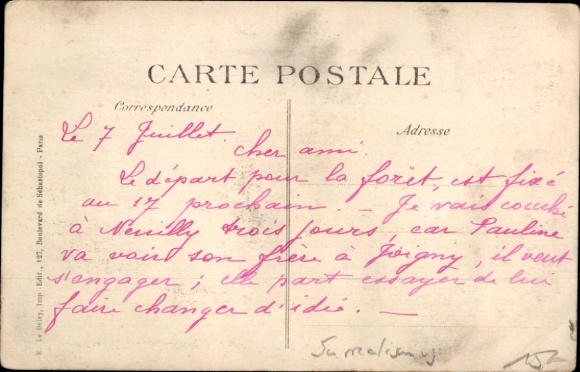 CARTE POSTALE
Correspondance
Adresse
Le 7 Juillet.
cher ami.
Le départ pour la forêt, est fixé
au 17 prochain. — Je vais couché
à Neuilly trois jours, car Pauline
va voir son frère à Joigny, il veut
s'engager; elle part essayer de lui
faire changer d'idée. —
E. Le Deley, Imp.-Edit., 127, Boulevard de Sébastopol - Paris